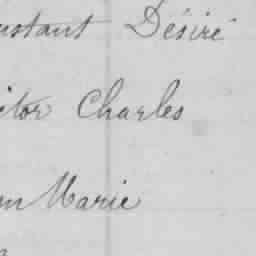 nstant Désiré
ctor Charles
an Marie